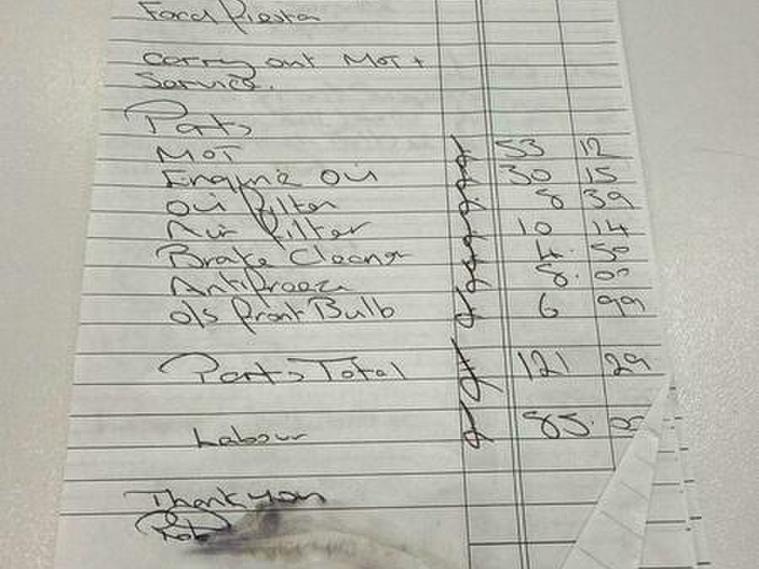 Ford Fiesta
Carry out MOT +
Service.
Parts
MOT £ 53 12
Engine Oil £ 30 15
Oil Filter £ 8 39
Air Filter £ 10 14
Brake Cleaner £ 4. 50
Antifreeze £ 8. 00
o/s front Bulb £ 6 99
Parts Total £ 121 29
Labour £ 85. 00
Thank you
Rob